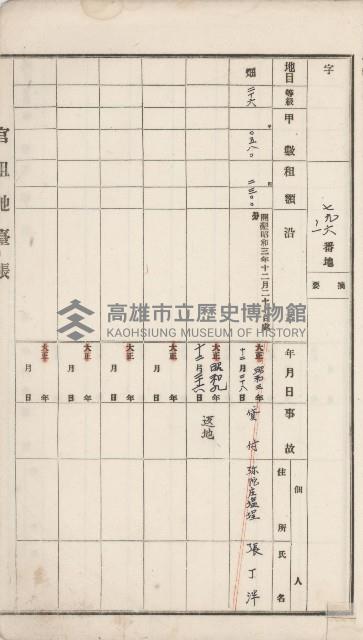 官租地臺帳
字
七九六
番地
摘要
地目
等級
甲數
租額
沿
年月日
事故
個人
住所
氏名
畑
二十六
〇五八〇
二三〇〇
開墾昭和三年十二月二十
大正 昭和三年
十二月二十八日
貸付
弥陀庄塭埕
張丁洋
大正 昭和九年
十二月三十六日
返地
大正 年
月 日
大正 年
月 日
大正 年
月 日
大正 年
月 日
高雄市立歷史博物館
KAOHSIUNG MUSEUM OF HISTORY